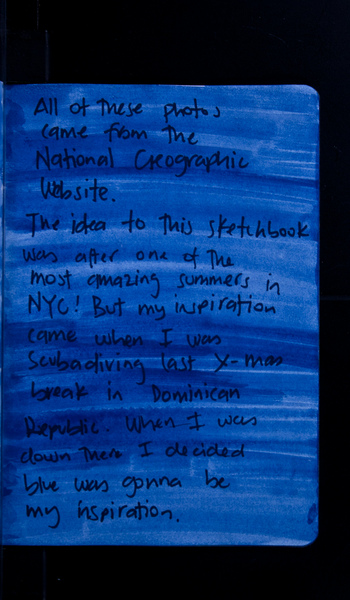 All of these photos
came from the
National Geographic
Website.
The idea to this sketchbook
was after one of the
most amazing summers in
NYC! But my inspiration
came when I was
Scubadiving last X-mas
break in Dominican
Republic. When I was
down there I decided
blue was gonna be
my inspiration.